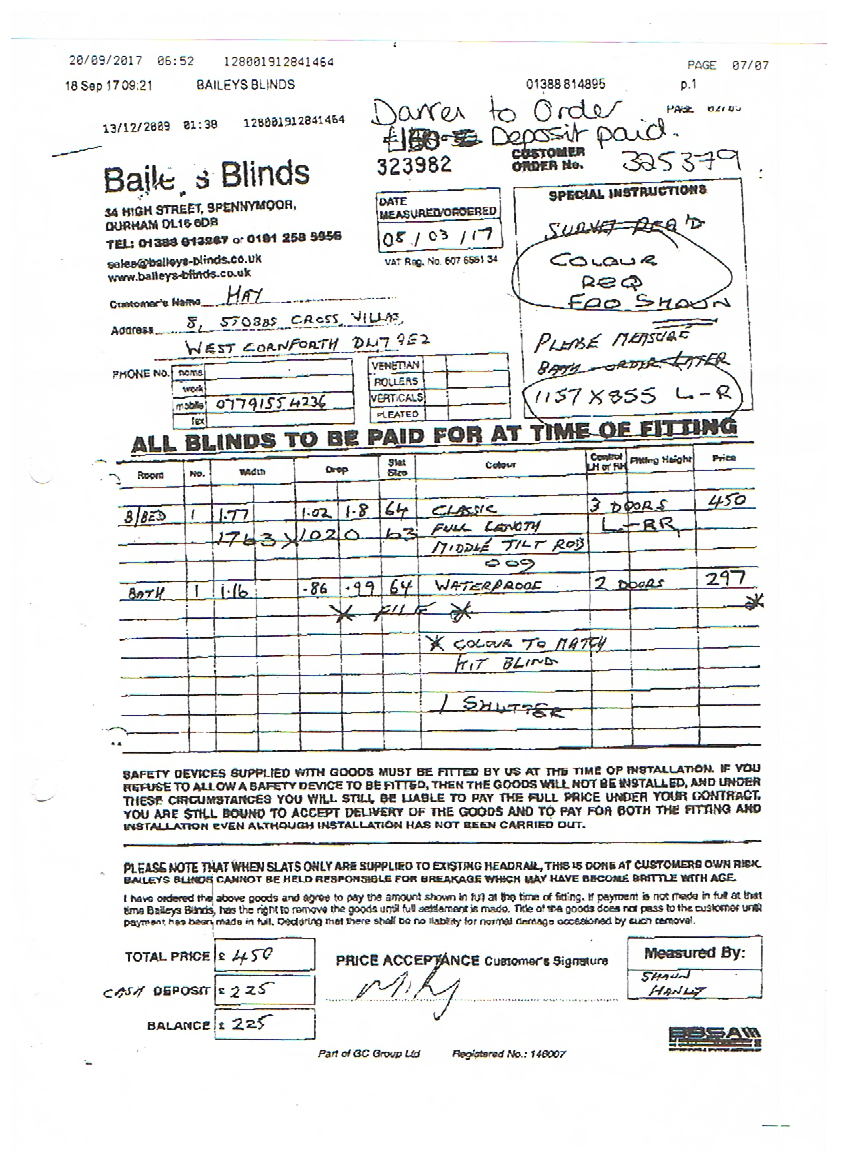 20/09/2017 06:52 128001912841464 PAGE 07/07
18 Sep 17 09:21 BAILEYS BLINDS 01388 814895 p.1
13/12/2009 01:38 128001912841464 PAGE
Darren to Order
Deposit paid.
323982
CUSTOMER
ORDER No. 325379
Baileys Blinds
34 HIGH STREET, SPENNYMOOR,
DURHAM DL16 6DB
TEL: 01388 813287 or 0191 258 5956
sales@baileys-blinds.co.uk
www.baileys-blinds.co.uk
DATE
MEASURED/ORDERED
08/03/17
VAT Reg. No. 607 6581 34
SPECIAL INSTRUCTIONS
SURVEY REQ'D
COLOUR
REQ
FAO SHAUN
PLEASE MEASURE
BATH - ORDER LATER
1157 X 855 L-R
Customer's Name HAY
Address 8, STOBBS CROSS VILLAS,
WEST CORNFORTH DL17 9EZ
PHONE No. home
work
mobile 07791554236
fax
VENETIAN
ROLLERS
VERTICALS
PLEATED
ALL BLINDS TO BE PAID FOR AT TIME OF FITTING
Room No. Width Drop Slat Size Colour Control LH or RH Fitting Height Price
B/BED 1 1.77 1.02 1.8 64 CLASSIC 3 DOORS 450
1763 X 1020 63 FULL LENGTH L-RR
MIDDLE TILT ROD
009
BATH 1 1.16 .86 .99 64 WATERPROOF 2 DOORS 297
* *
*
* COLOUR TO MATCH
KIT BLIND
1 SHUTTER
SAFETY DEVICES SUPPLIED WITH GOODS MUST BE FITTED BY US AT THE TIME OF INSTALLATION. IF YOU
REFUSE TO ALLOW A SAFETY DEVICE TO BE FITTED, THEN THE GOODS WILL NOT BE INSTALLED, AND UNDER
THESE CIRCUMSTANCES YOU WILL STILL BE LIABLE TO PAY THE FULL PRICE UNDER YOUR CONTRACT.
YOU ARE STILL BOUND TO ACCEPT DELIVERY OF THE GOODS AND TO PAY FOR BOTH THE FITTING AND
INSTALLATION EVEN ALTHOUGH INSTALLATION HAS NOT BEEN CARRIED OUT.
PLEASE NOTE THAT WHEN SLATS ONLY ARE SUPPLIED TO EXISTING HEADRAIL, THIS IS DONE AT CUSTOMERS OWN RISK.
BAILEYS BLINDS CANNOT BE HELD RESPONSIBLE FOR BREAKAGE WHICH MAY HAVE BECOME BRITTLE WITH AGE.
I have ordered the above goods and agree to pay the amount shown in full at the time of fitting. If payment is not made in full at that
time Baileys Blinds, has the right to remove the goods until full settlement is made. Title of the goods does not pass to the customer until
payment has been made in full. Declaring that there shall be no liability for normal damage occasioned by such removal.
TOTAL PRICE £ 450
CASH DEPOSIT £ 225
BALANCE £ 225
PRICE ACCEPTANCE Customer's Signature
Measured By:
SHAUN
HANLEY
BBSA
Part of GC Group Ltd Registered No.: 146007